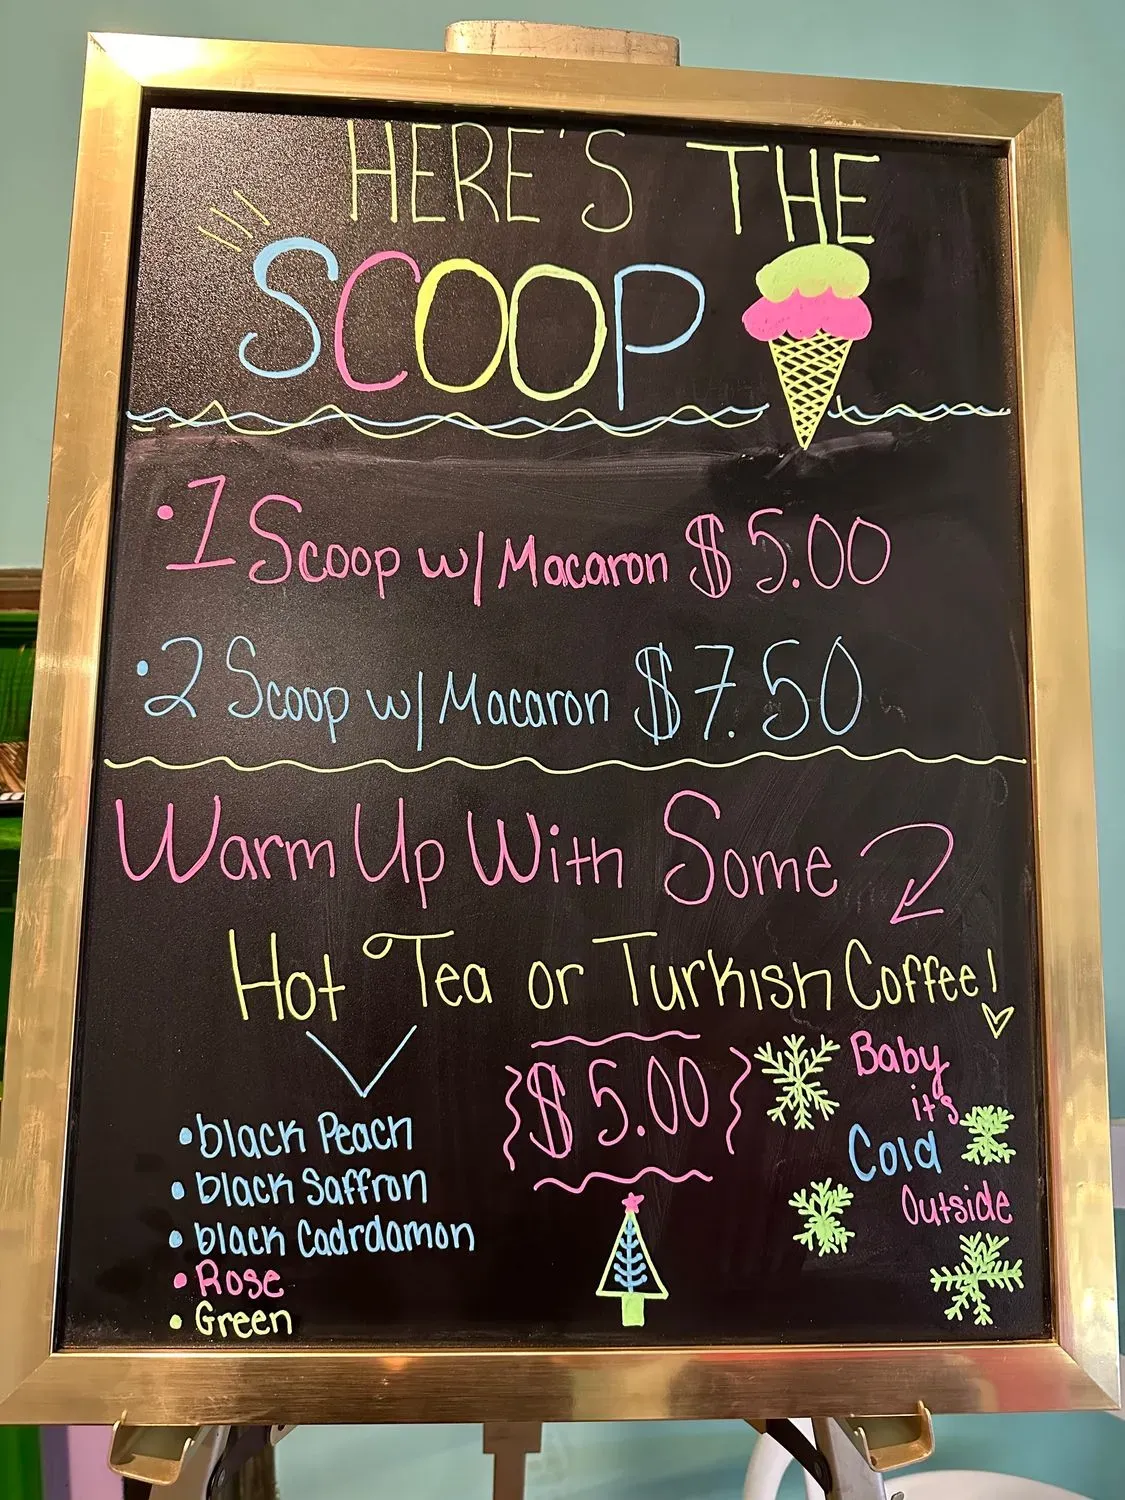 HERE'S THE
SCOOP
• 1 Scoop w/ Macaron $5.00
• 2 Scoop w/ Macaron $7.50
Warm Up With Some
Hot Tea or Turkish Coffee!
$5.00
• black Peach
• black Saffron
• black Cadrdamon
• Rose
• Green
Baby
it's
Cold
Outside